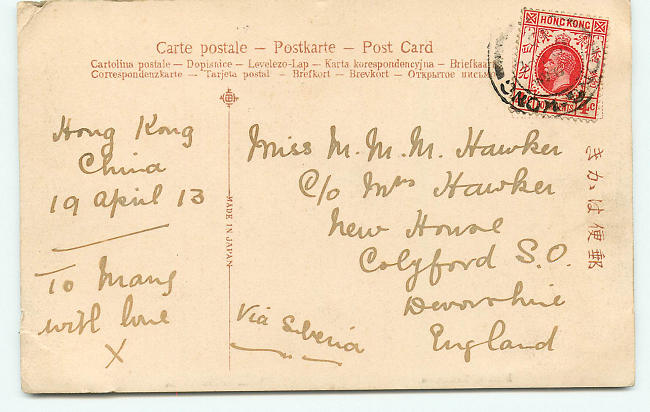 Carte postale — Postkarte — Post Card
Cartolina postale — Dopisnice — Levelezo-Lap — Karta korespondencyjna — Briefkaart
Correspondenzkarte — Tarjeta postal — Brefkort — Brevkort — Открытое письмо
HONG KONG
4c
Hong Kong
China
19 April 13
To Mang
with love
X
MADE IN JAPAN
Miss M. M. M. Hawker
C/o Mrs Hawker
New House
Colyford S.O.
Devonshire
England
Via Siberia
きかは便郵